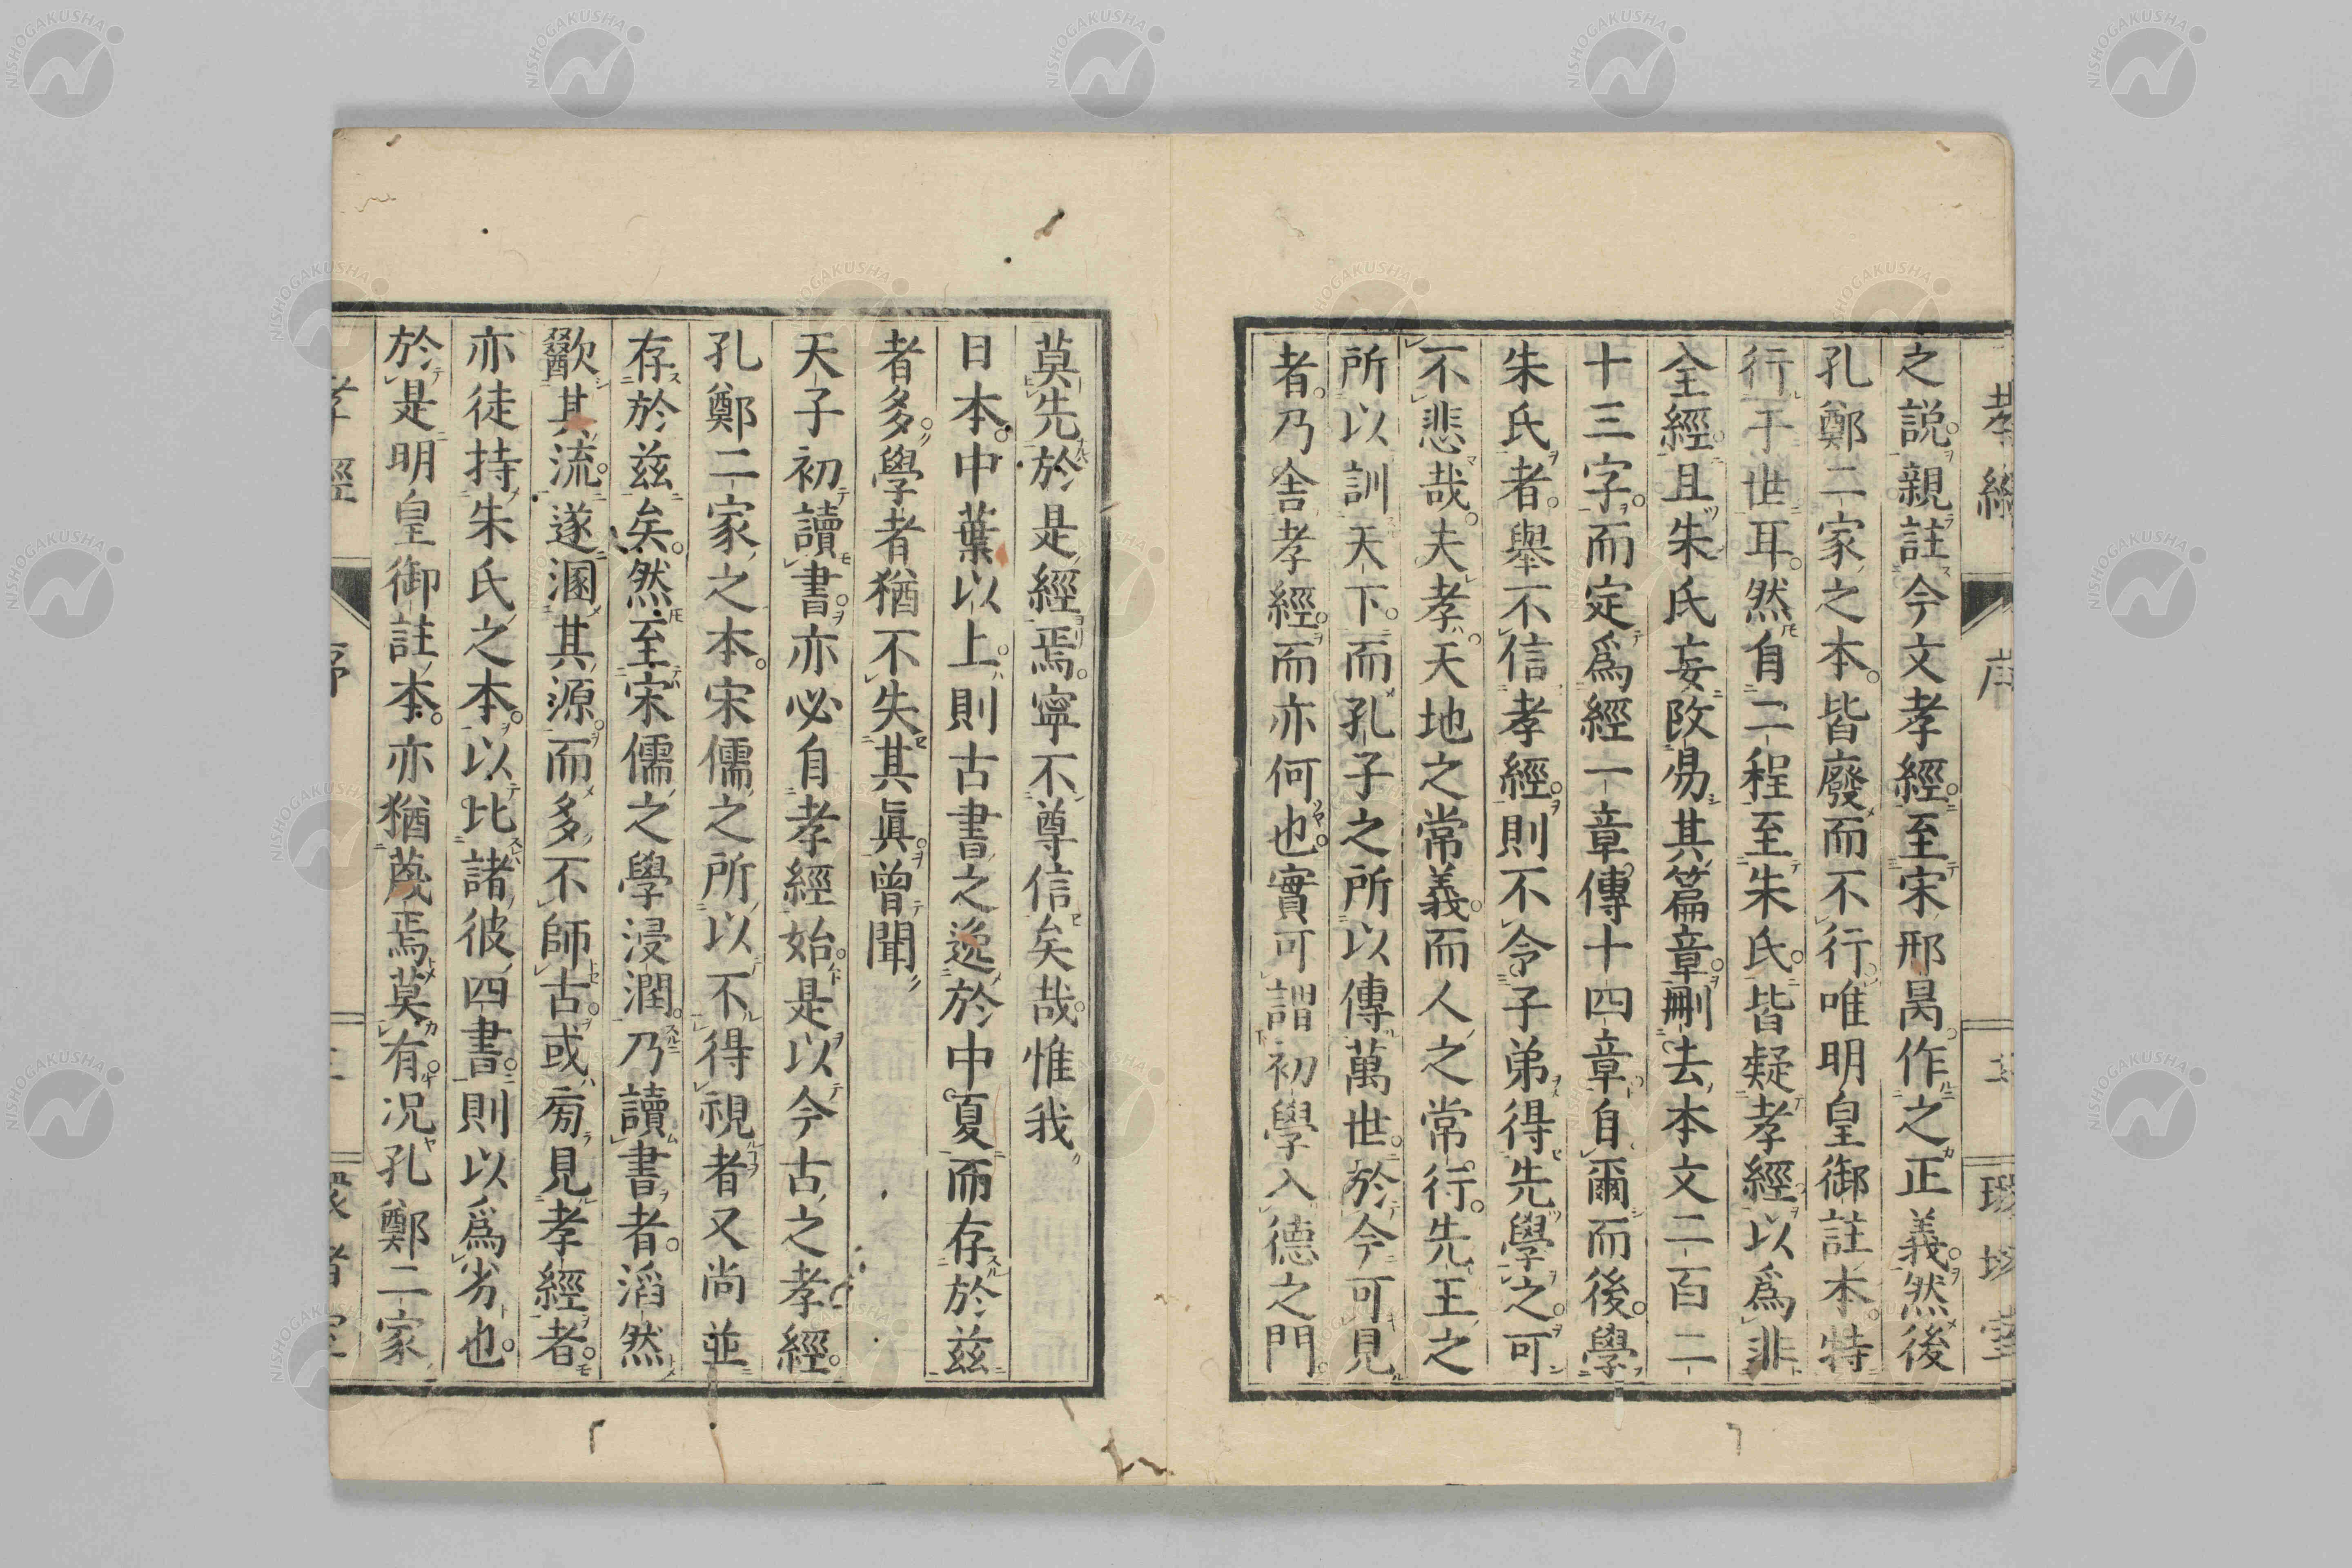 孝經
序
之説親註今文孝經至宋邢昺作之正義然後
孔鄭二家之本皆廢而不行唯明皇御註本特
行于世耳然自二程至朱氏皆疑孝經以爲非
全經且朱氏妄改易其篇章刪去本文二百二
十三字而定爲經一章傳十四章自爾而後學
朱氏者舉不信孝經則不令子弟得先學之可
不悲哉夫孝天地之常義而人之常行先王之
所以訓天下而孔子之所以傳萬世於今可見
者乃舎孝經而亦何也實可謂初學入德之門
莫先於是經焉寧不尊信矣哉惟我
日本中葉以上則古書之逸於中夏而存於茲
者多學者猶不失其眞曾聞
天子初讀書亦必自孝經始是以今古之孝經
孔鄭二家之本宋儒之所以不得視者又尚並
存於茲矣然至宋儒之學浸潤乃讀書者滔然
歠其流遂溷其源而多不師古或旁見孝經者
亦徒持朱氏之本以比諸彼四書則以爲劣也
於是明皇御註本亦猶蔑焉莫有况孔鄭二家
孝經
序